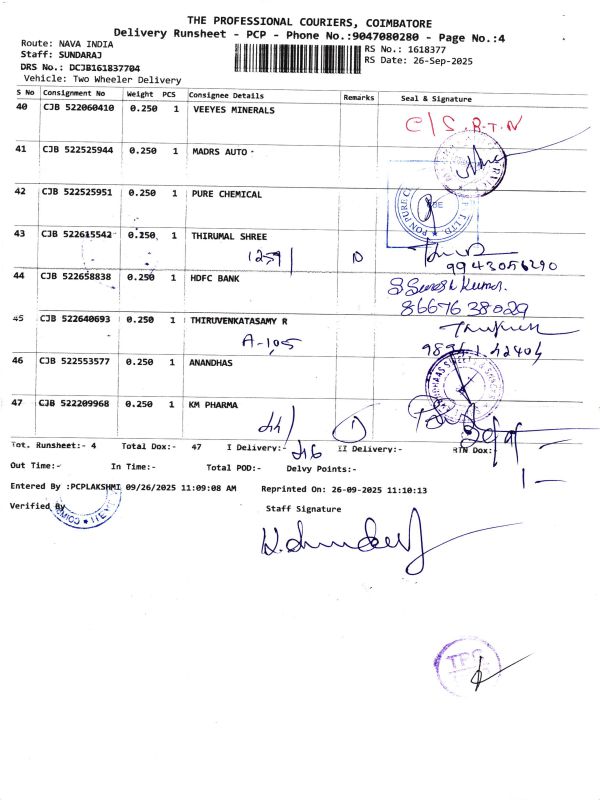 THE PROFESSIONAL COURIERS, COIMBATORE
Delivery Runsheet - PCP - Phone No.:9047080280 - Page No.:4
Route: NAVA INDIA
RS No.: 1618377
Staff: SUNDARAJ
RS Date: 26-Sep-2025
DRS No.: DCJB161837704
Vehicle: Two Wheeler Delivery
S No Consignment No Weight PCS Consignee Details Remarks Seal & Signature
40 CJB 522060410 0.250 1 VEEYES MINERALS
C/S. R.T.N
41 CJB 522525944 0.250 1 MADRS AUTO
42 CJB 522525951 0.250 1 PURE CHEMICAL
43 CJB 522615542 0.250 1 THIRUMAL SHREE
1259
9943056290
44 CJB 522658838 0.250 1 HDFC BANK
S Suresh Kumar.
8667638029
45 CJB 522640693 0.250 1 THIRUVENKATASAMY R
A-105
46 CJB 522553577 0.250 1 ANANDHAS
47 CJB 522209968 0.250 1 KM PHARMA
Tot. Runsheet:- 4 Total Dox:- 47 I Delivery:- 46 II Delivery:- RTN Dox:-
Out Time:- In Time:- Total POD:- Delvy Points:-
Entered By :PCPLAKSHMI 09/26/2025 11:09:08 AM Reprinted On: 26-09-2025 11:10:13
Verified By
Staff Signature
TPC